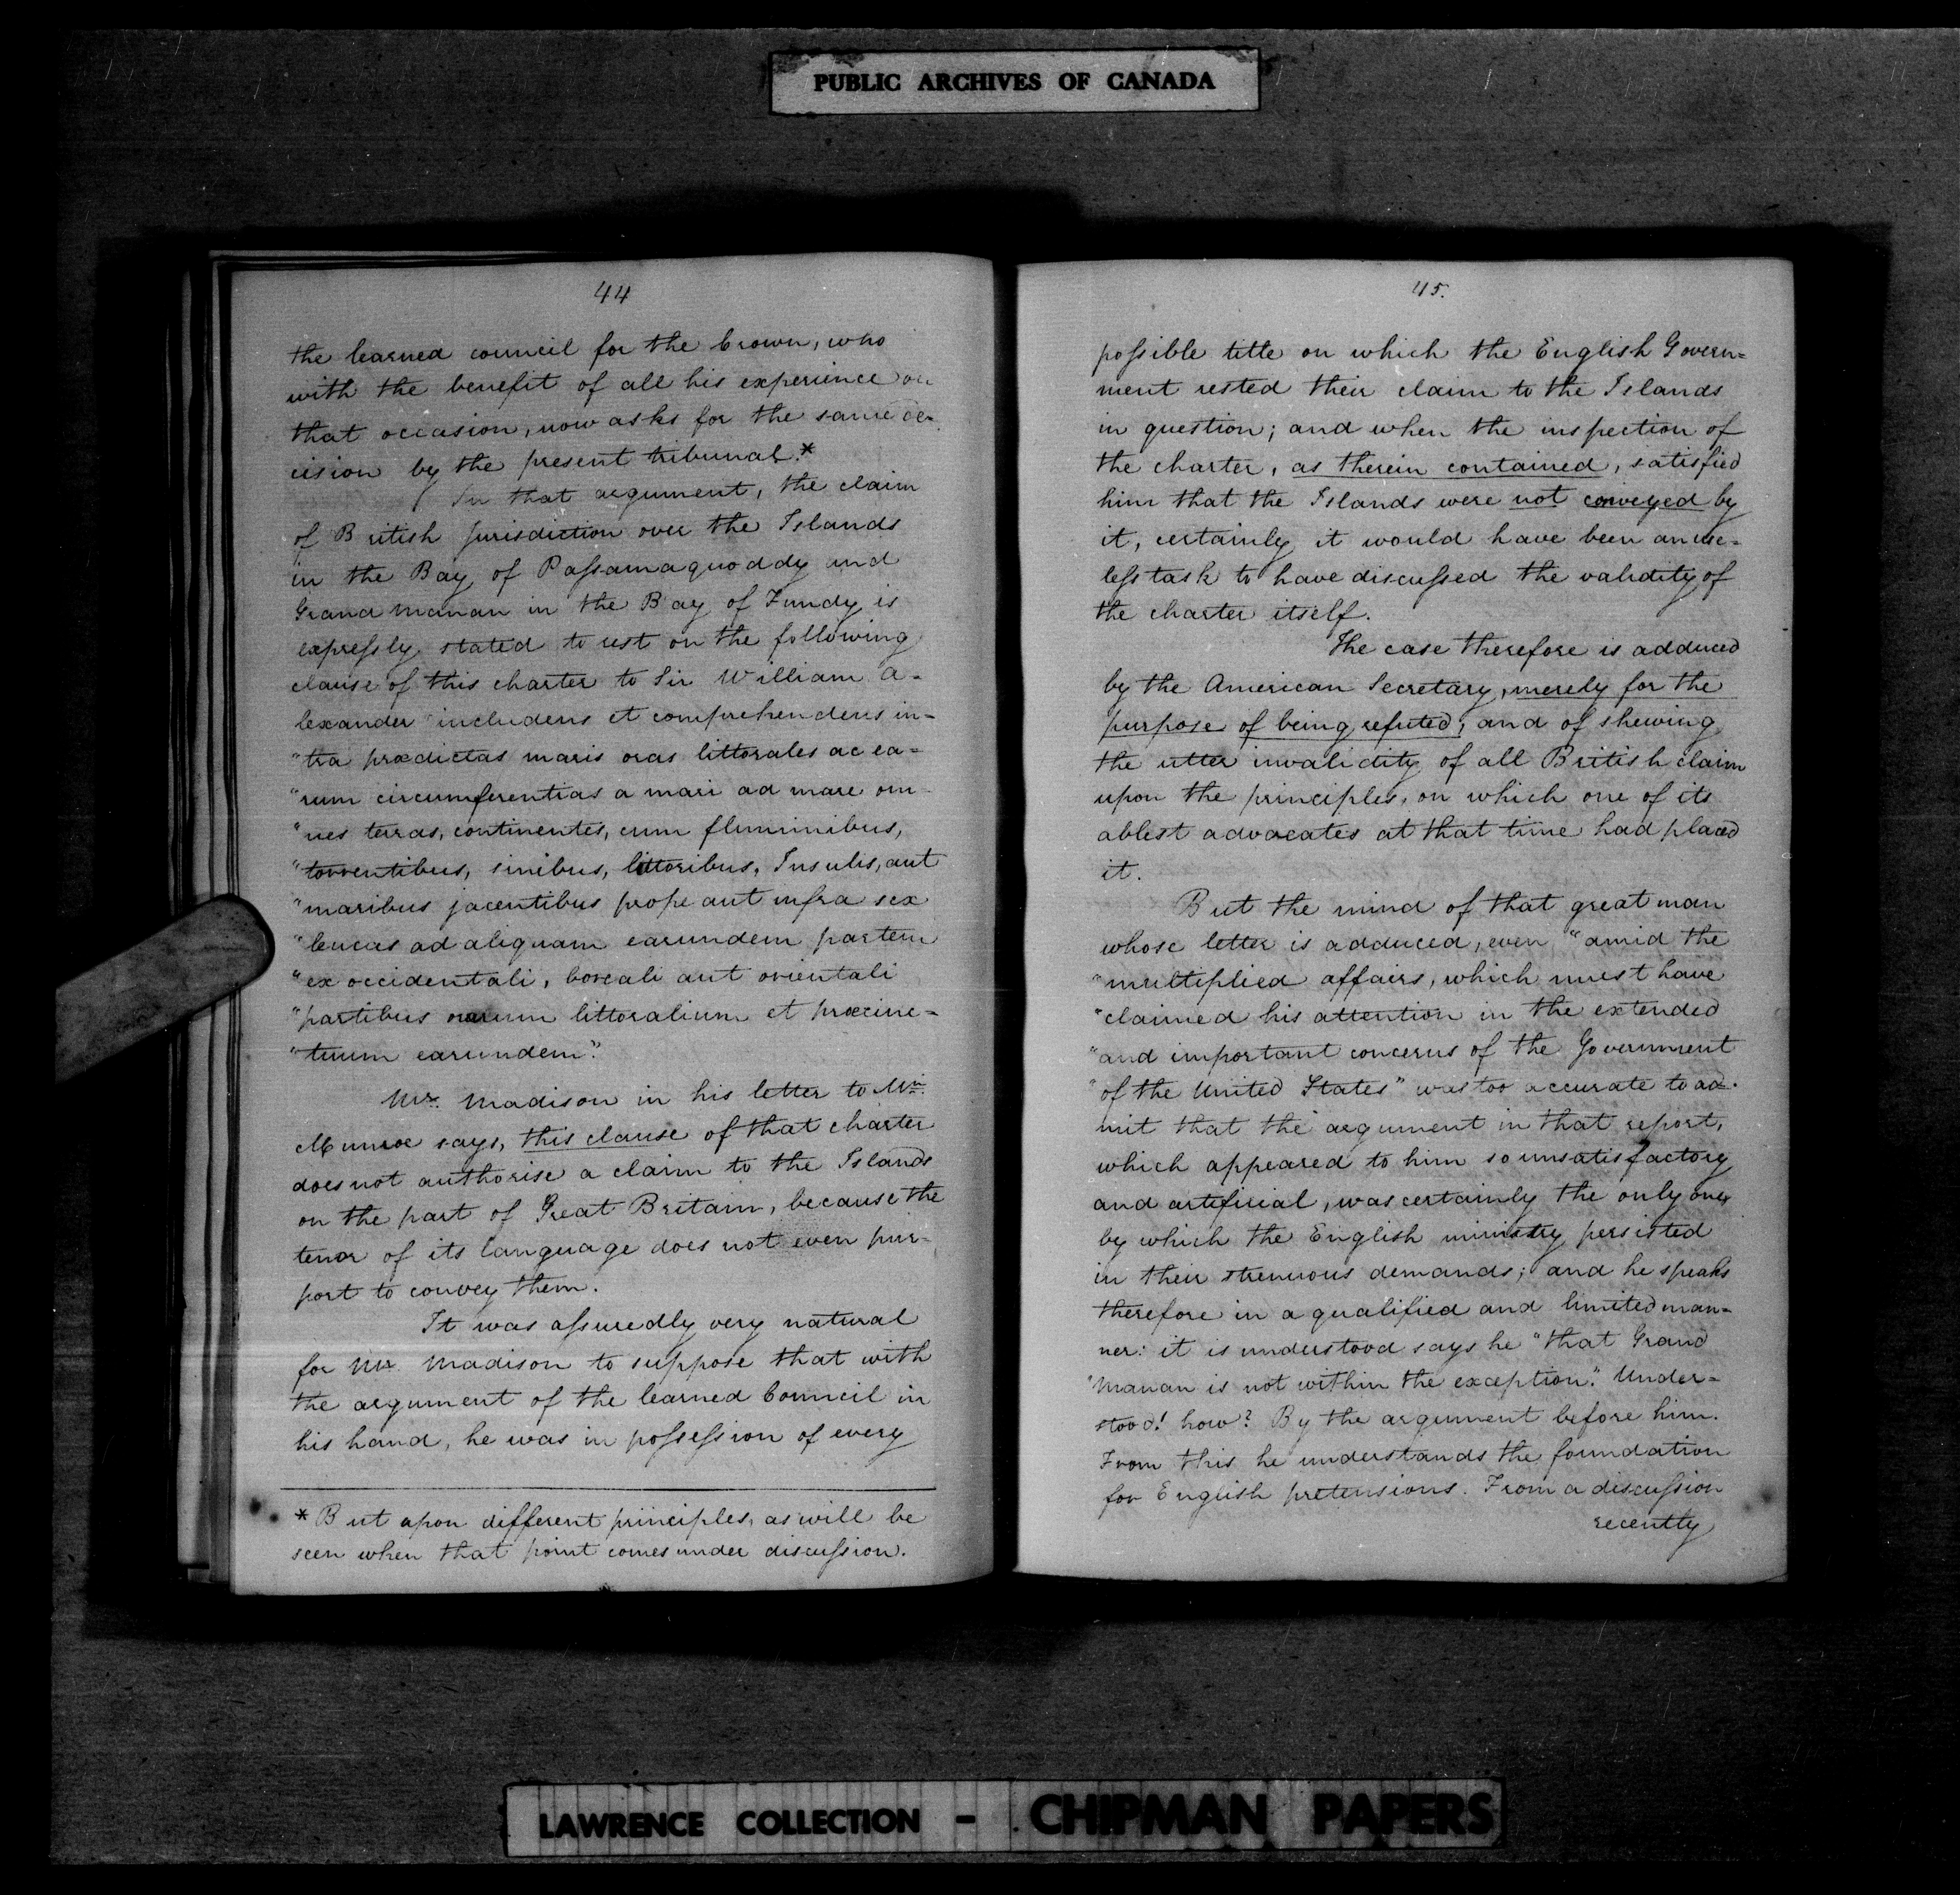 PUBLIC ARCHIVES OF CANADA
44
the learned council for the Crown, who
with the benefit of all his experience on
that occasion, now asks for the same de-
cision by the present tribunal.*
In that argument, the claim
of British jurisdiction over the Islands
in the Bay of Passamaquoddy and
Grand Manan in the Bay of Fundy is
expressly stated to rest on the following
clause of this charter to Sir William A-
lexander "includens et comprehendens in-
"tra prædictas maris oras littorales ac ea-
"rum circumferentias a mari ad mare om-
"nes terras, continentes, cum fluminibus,
"torrentibus, sinibus, littoribus, Insulis, aut
"maribus jacentibus prope aut infra sex
"leucas ad aliquam earundem partem
"ex occidentali, boreali aut orientali
"partibus orarum littoralium et præcinc-
"tuum earundem".
Mr. Madison in his letter to Mr.
Munroe says, this clause of that charter
does not authorise a claim to the Islands
on the part of Great Britain, because the
tenor of its language does not even pur-
port to convey them.
It was assuredly very natural
for Mr. Madison to suppose that with
the argument of the learned Council in
his hand, he was in possession of every
* But upon different principles, as will be
seen when that point comes under discussion.
45.
possible title on which the English Govern=
ment rested their claim to the Islands
in question; and when the inspection of
the charter, as therein contained, satisfied
him that the Islands were not conveyed by
it, certainly it would have been an use=
less task to have discussed the validity of
the charter itself.
The case therefore is adduced
by the American Secretary, merely for the
purpose of being refuted; and of shewing
the utter invalidity of all British claim
upon the principles, on which one of its
ablest advocates at that time had placed
it.
But the mind of that great man
whose letter is adduced, even "amid the
"multiplied affairs, which must have
"claimed his attention in the extended
"and important concerns of the Government
"of the United States" was too accurate to ad-
mit that the argument in that report,
which appeared to him so unsatisfactory
and artificial, was certainly the only one,
by which the English ministry persisted
in their strenuous demands; and he speaks
therefore in a qualified and limited man-
ner: it is understood says he "that Grand
"Manan is not within the exception". Under-
stood! how? By the argument before him.
From this he understands the foundation
for English pretensions. From a discussion
recently
LAWRENCE COLLECTION - CHIPMAN PAPERS